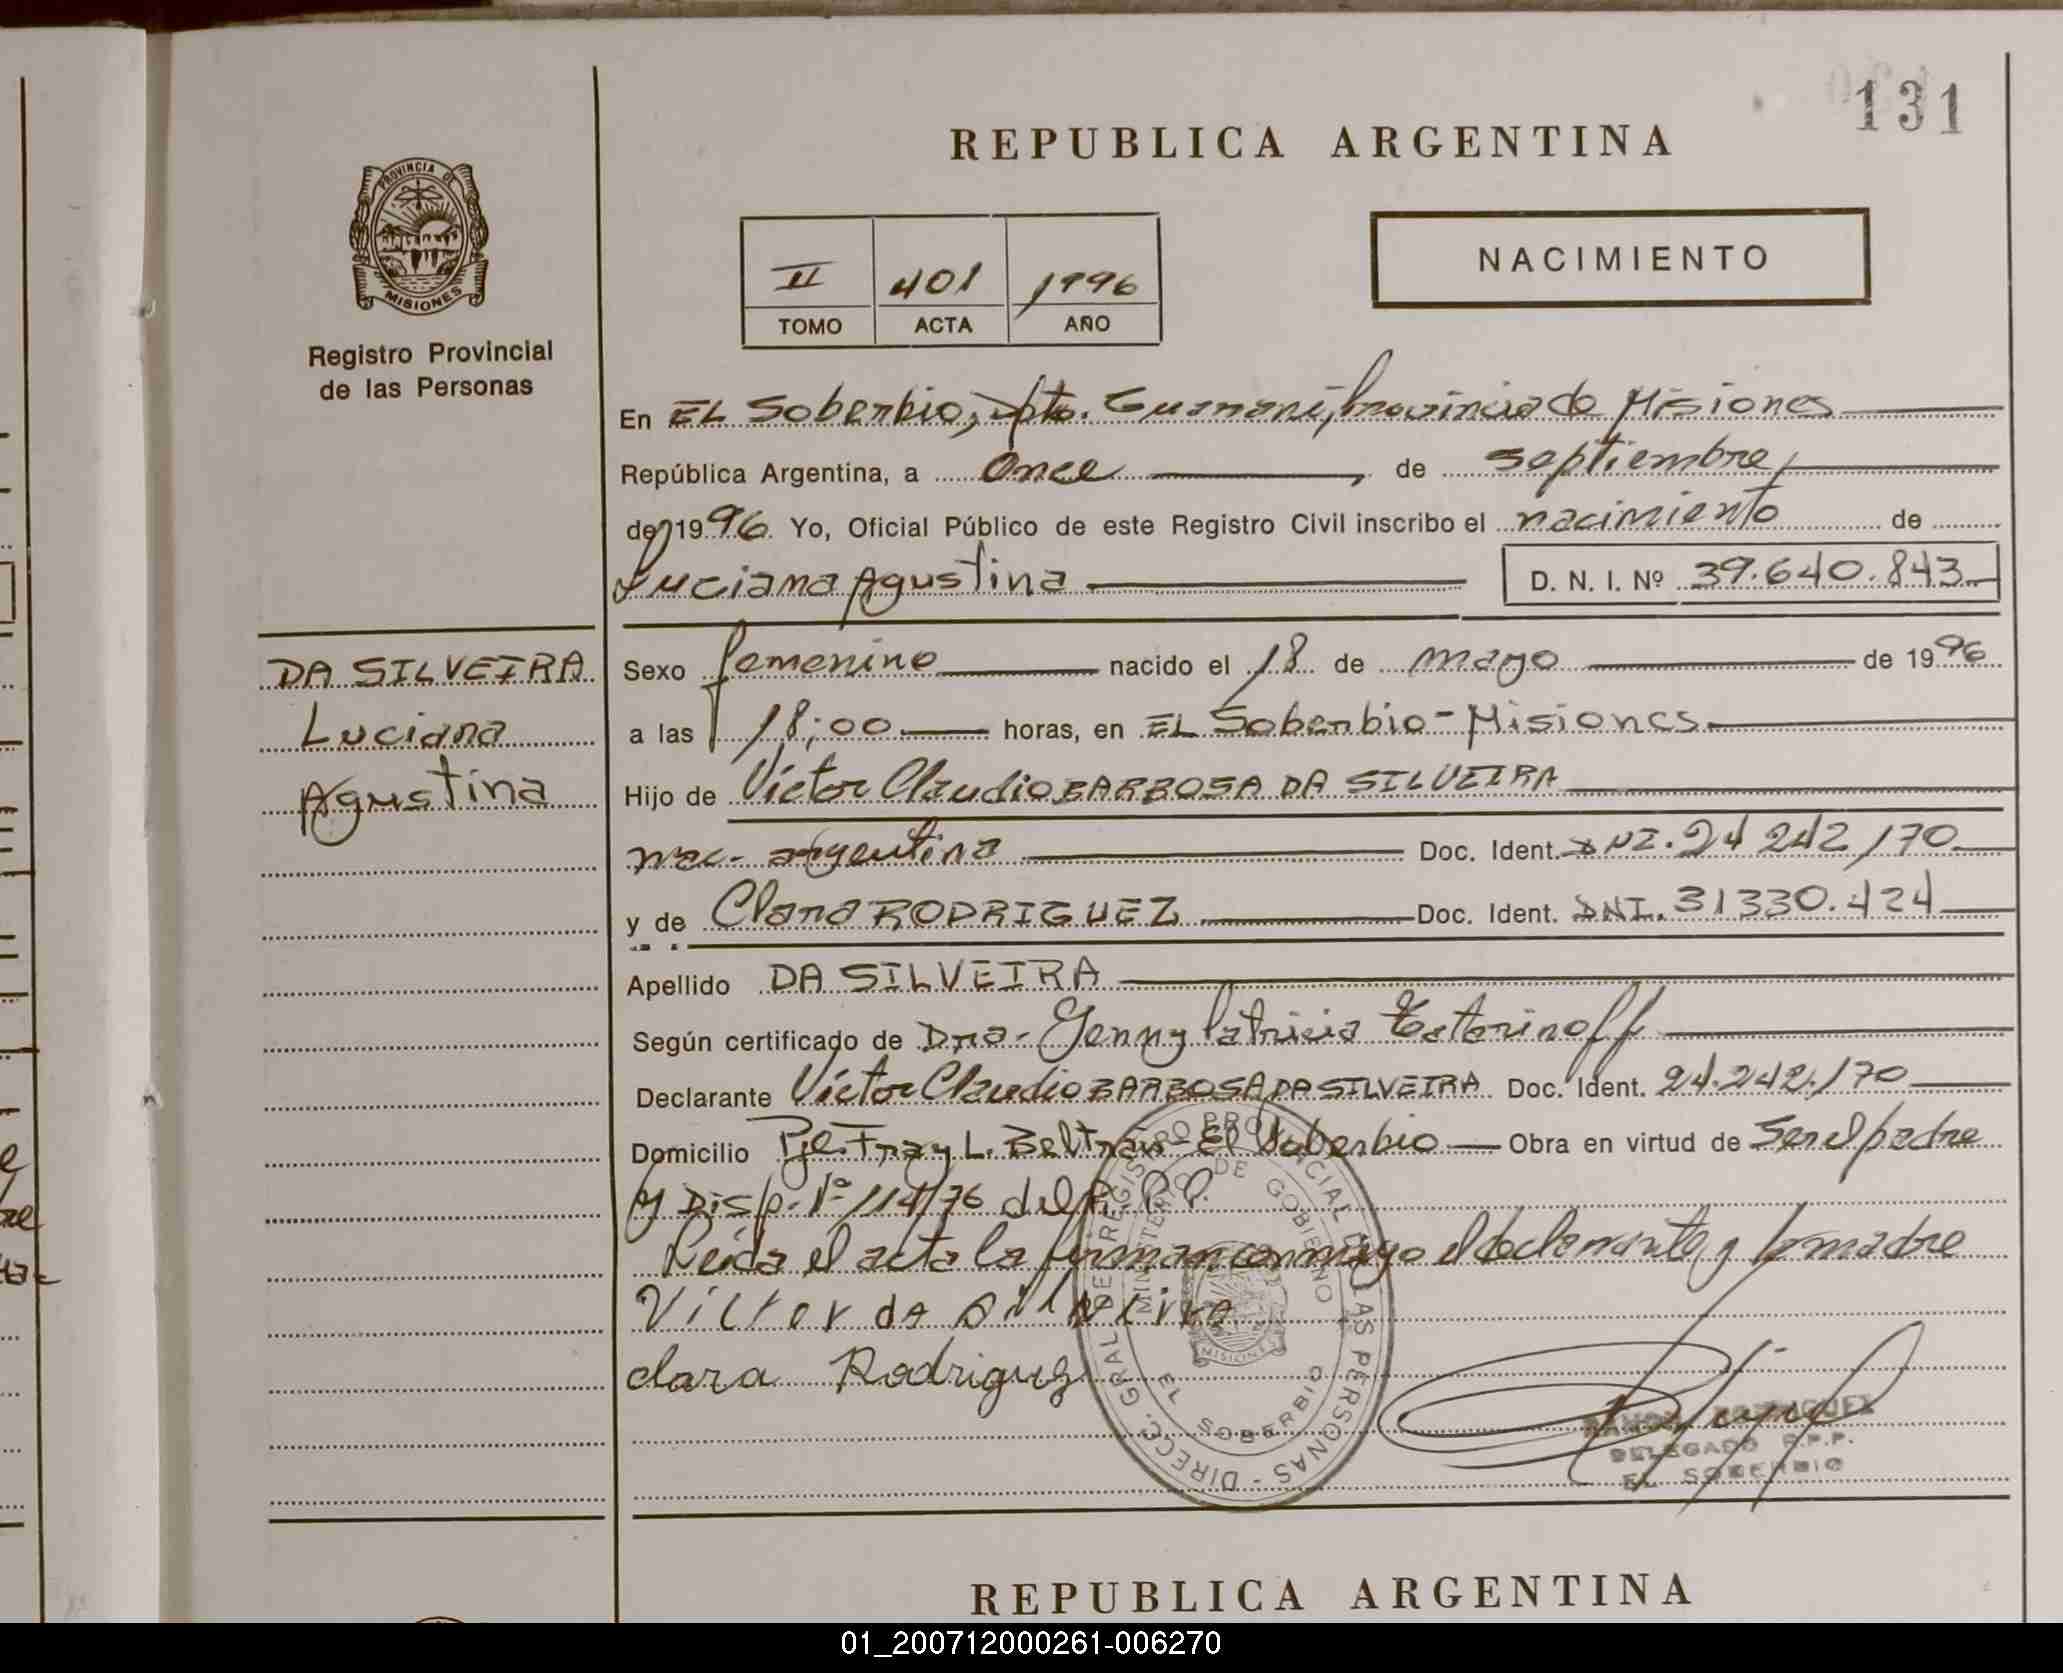 131
REPUBLICA ARGENTINA
PROVINCIA DE
MISIONES
Registro Provincial
de las Personas
NACIMIENTO
II 401 1996
TOMO ACTA AÑO
En EL Soberbio, Dpto. Guaraní, Provincia de Misiones
República Argentina, a Once de septiembre,
de 1996. Yo, Oficial Público de este Registro Civil inscribo el nacimiento de
Luciana Agustina D. N. I. Nº 39.640.843
DA SILVEIRA
Luciana
Agustina
Sexo femenino nacido el 18 de mayo de 1996
a las 18:00 horas, en EL Soberbio - Misiones
Hijo de Víctor Claudio BARBOSA DA SILVEIRA
nac- argentina Doc. Ident. DNI. 24 242 170
y de Clara RODRIGUEZ Doc. Ident. DNI. 31330.424
Apellido DA SILVEIRA
Según certificado de Dra- Jenny Patricia
Declarante Víctor Claudio BARBOSA DA SILVEIRA Doc. Ident. 24.242.170
Domicilio Pje. Fray L. Beltrán - El Soberbio Obra en virtud de Ser el padre
y Disp. Nº 114/76 del R. P. P.
Leída el acta la firman conmigo el declarante y la madre
Victor da Silveira
clara Rodriguez
DIRECC. GRAL. DE REGISTRO PROVINCIAL DE LAS PERSONAS -
MINISTERIO DE GOBIERNO
MISIONES
EL SOBERBIO
RAMON RODRIGUEZ
DELEGADO R.P.P.
EL SOBERBIO
REPUBLICA ARGENTINA
01_200712000261-006270